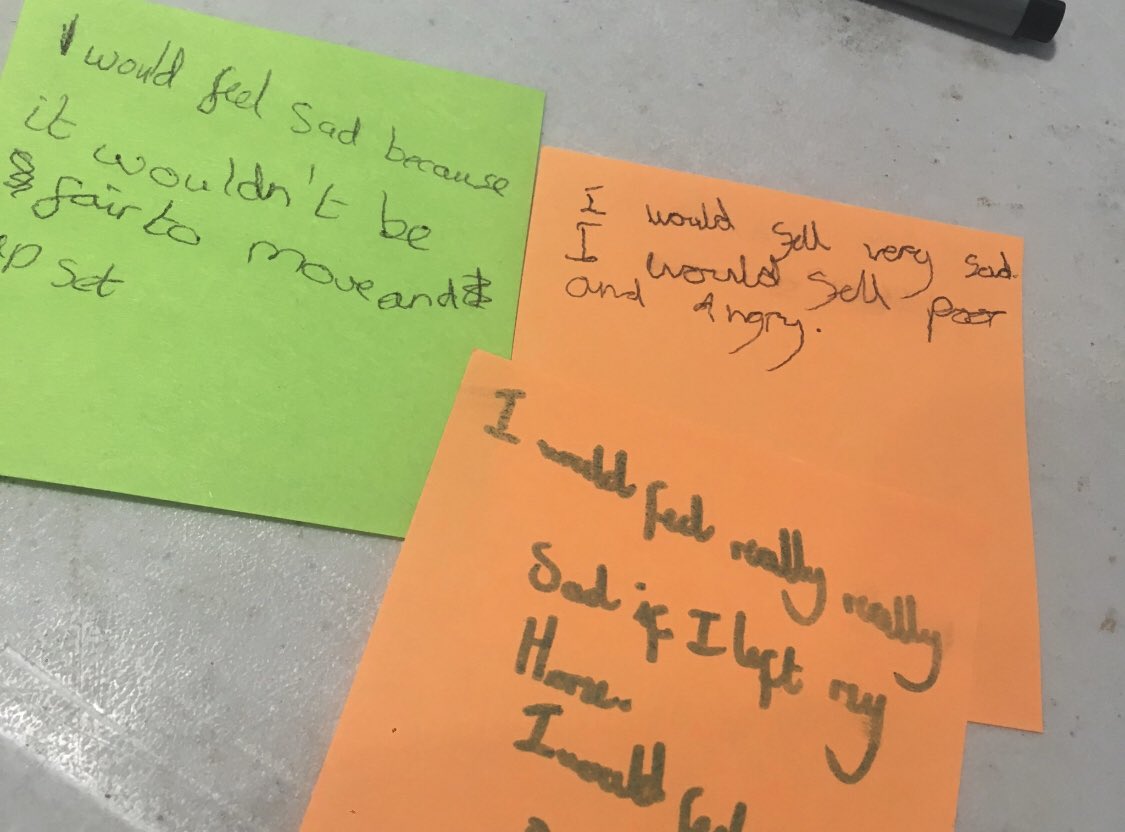 I would feel sad because
it wouldn't be
fair to move and
up set
I would sell very sad.
I would sell poor
and Angry.
I would feel really really
Sad if I left my
Home.
I would feel